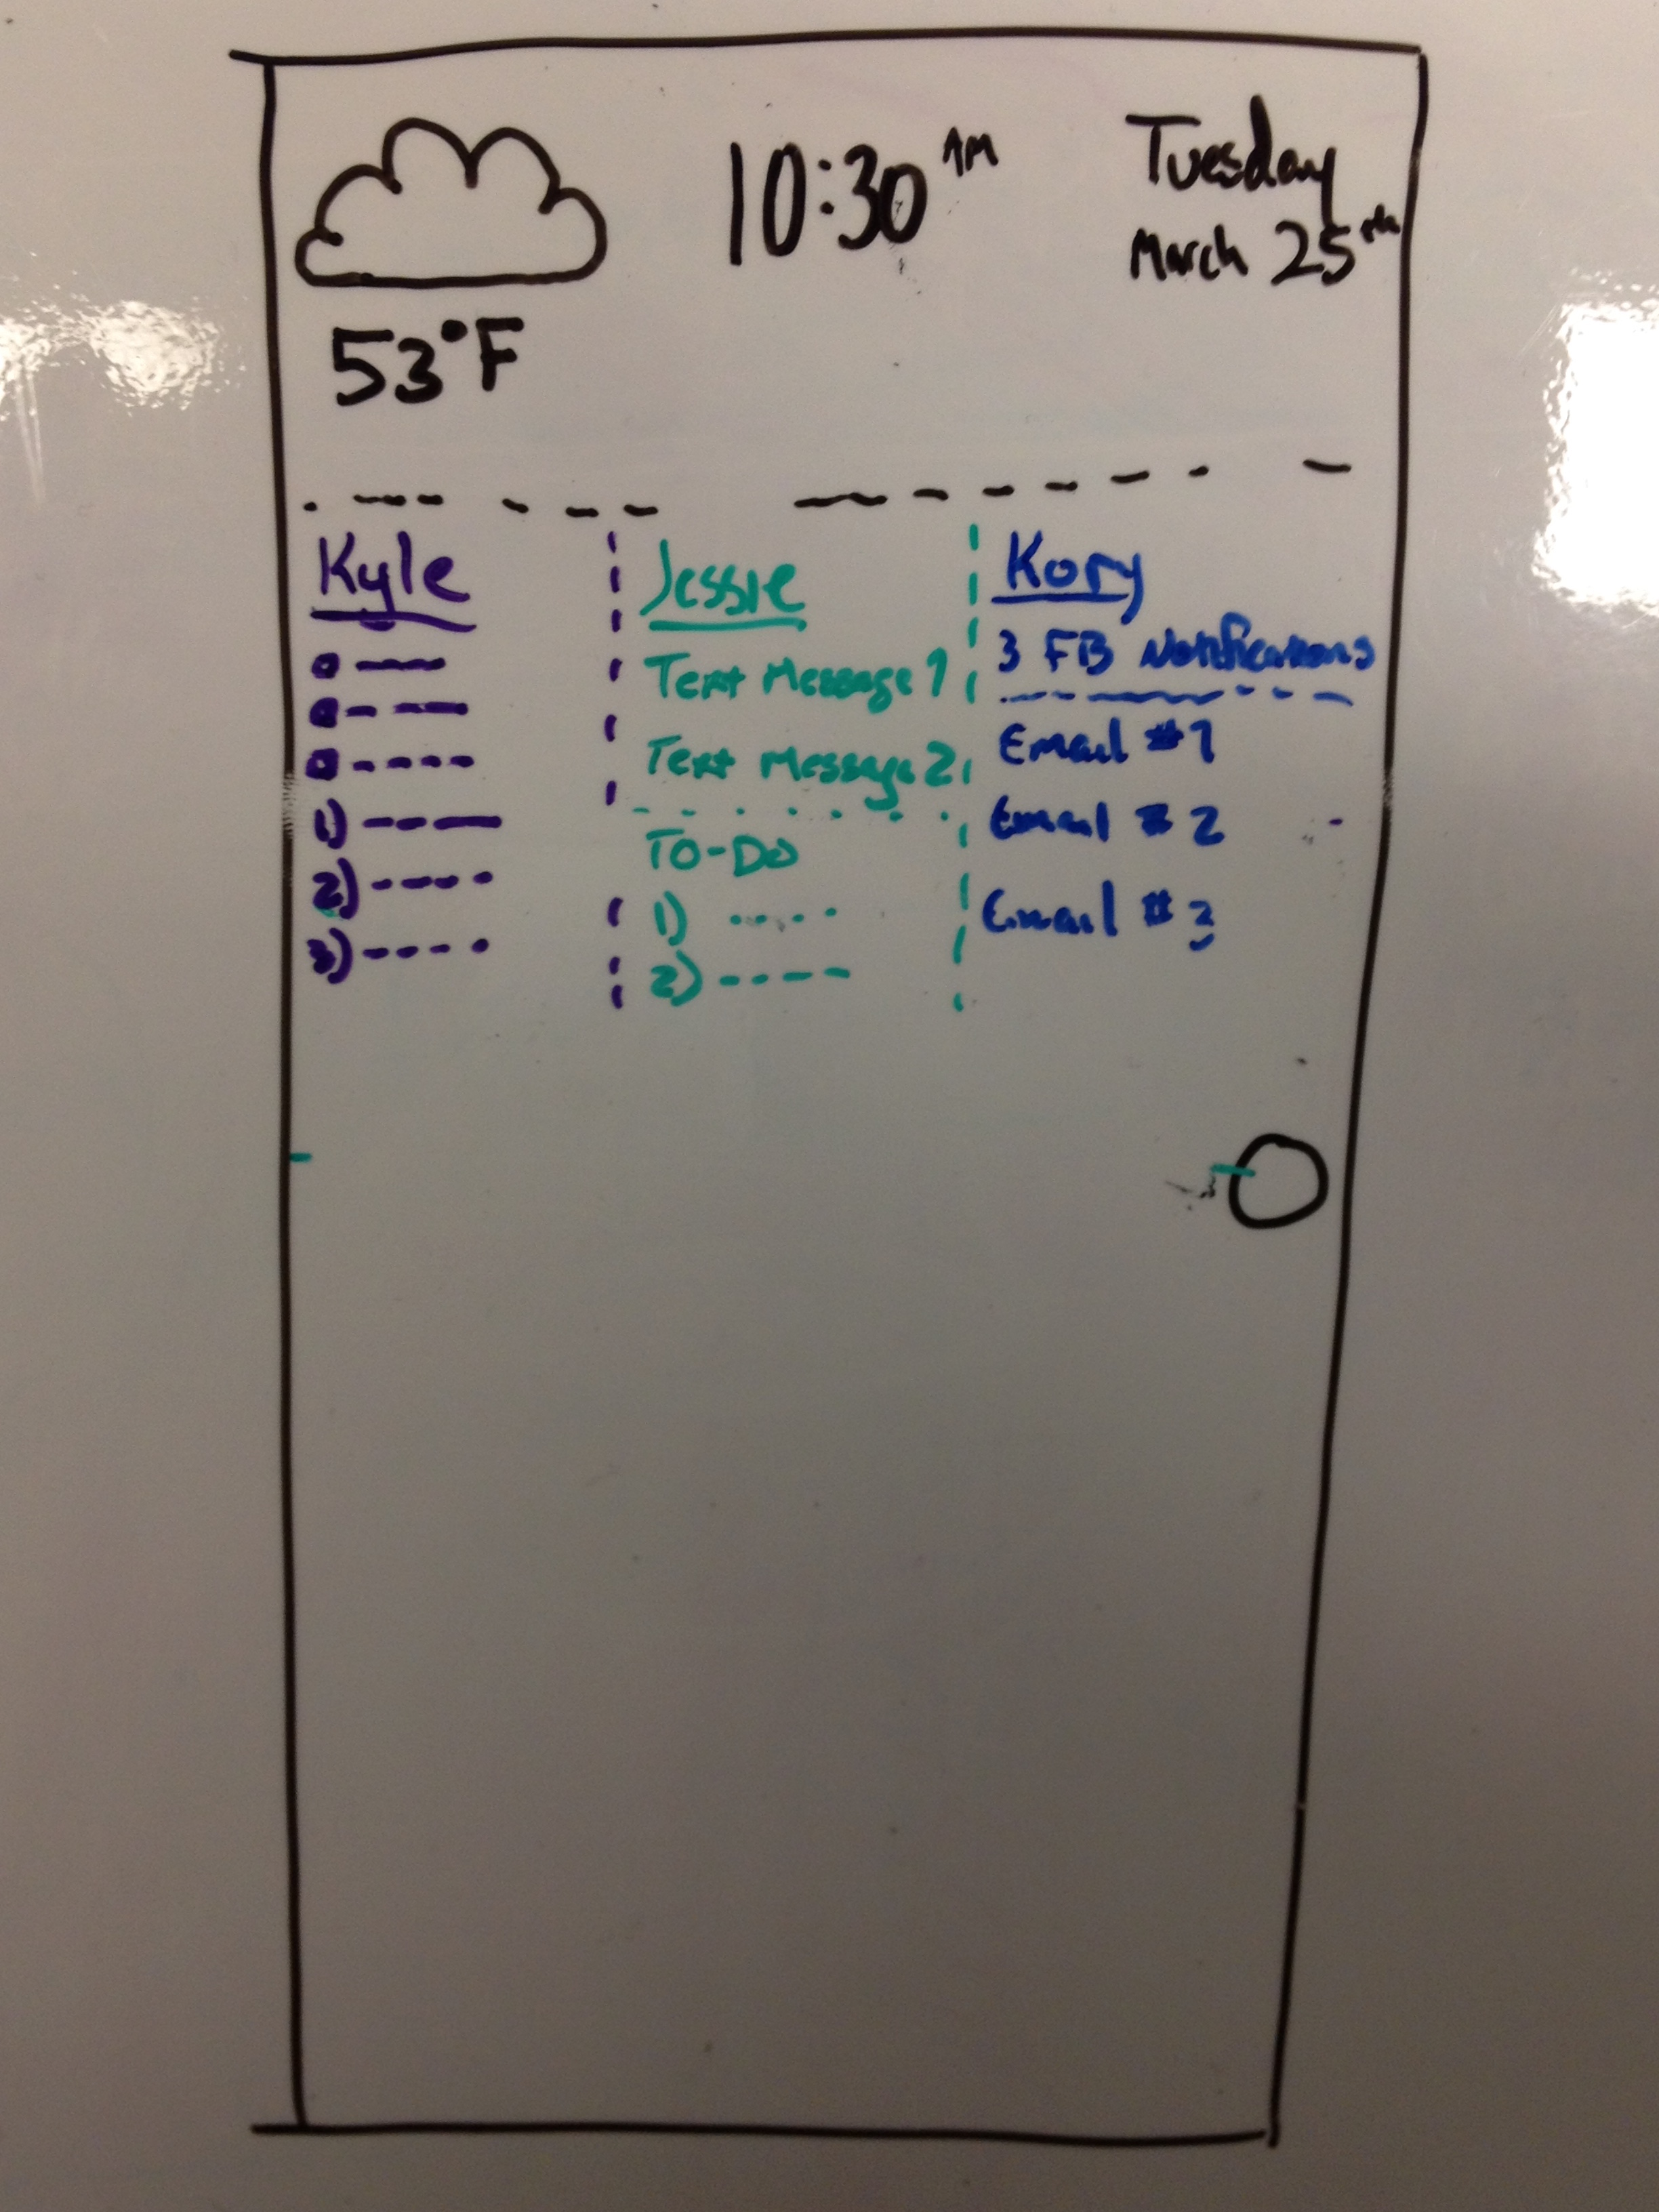 10:30 AM
Tuesday
March 25th
53°F
Kyle
1)
2)
3)
Jessie
Text Message 1
Text Message 2
To-Do
1)
2)
Kory
3 FB Notifications
Email #1
Email #2
Email #3